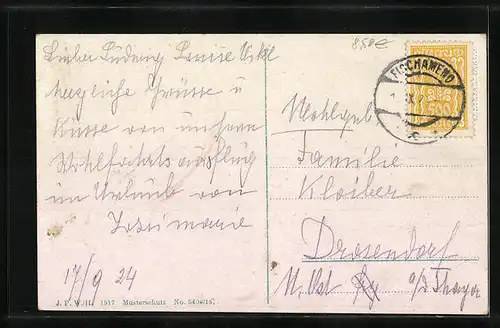 Lieber Ludwig Louise
herzliche Grüsse u
Küsse von unserem
Wohlfahrtsausflug
im Urlaub von
17/9 24
J. P. W./II. 1917 Musterschutz No. 5408/16.
8,50€
FISCHAMEND
500
Wohlgeb
Familie
Kloiber
Drosendorf
N. Öst a/d Thaya